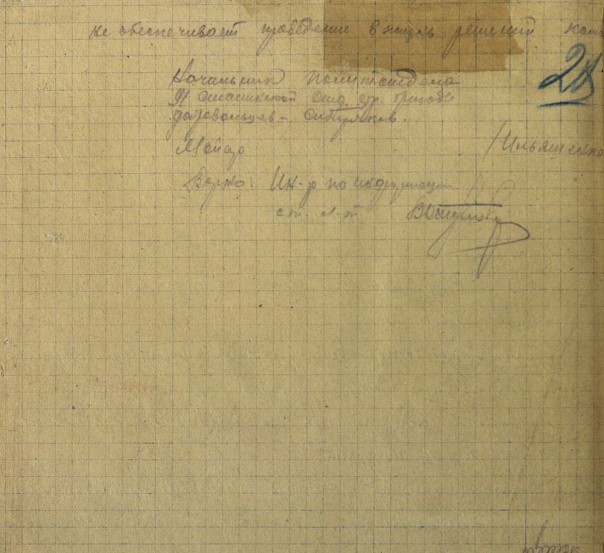 не обеспечивает проведение в жизнь решений
21
Начальник Политотдела
91 отд. стр. бригады
добровольцев-сибиряков.
Майор /Ильященко
Верно: Ин-р по информации
ст. л-т